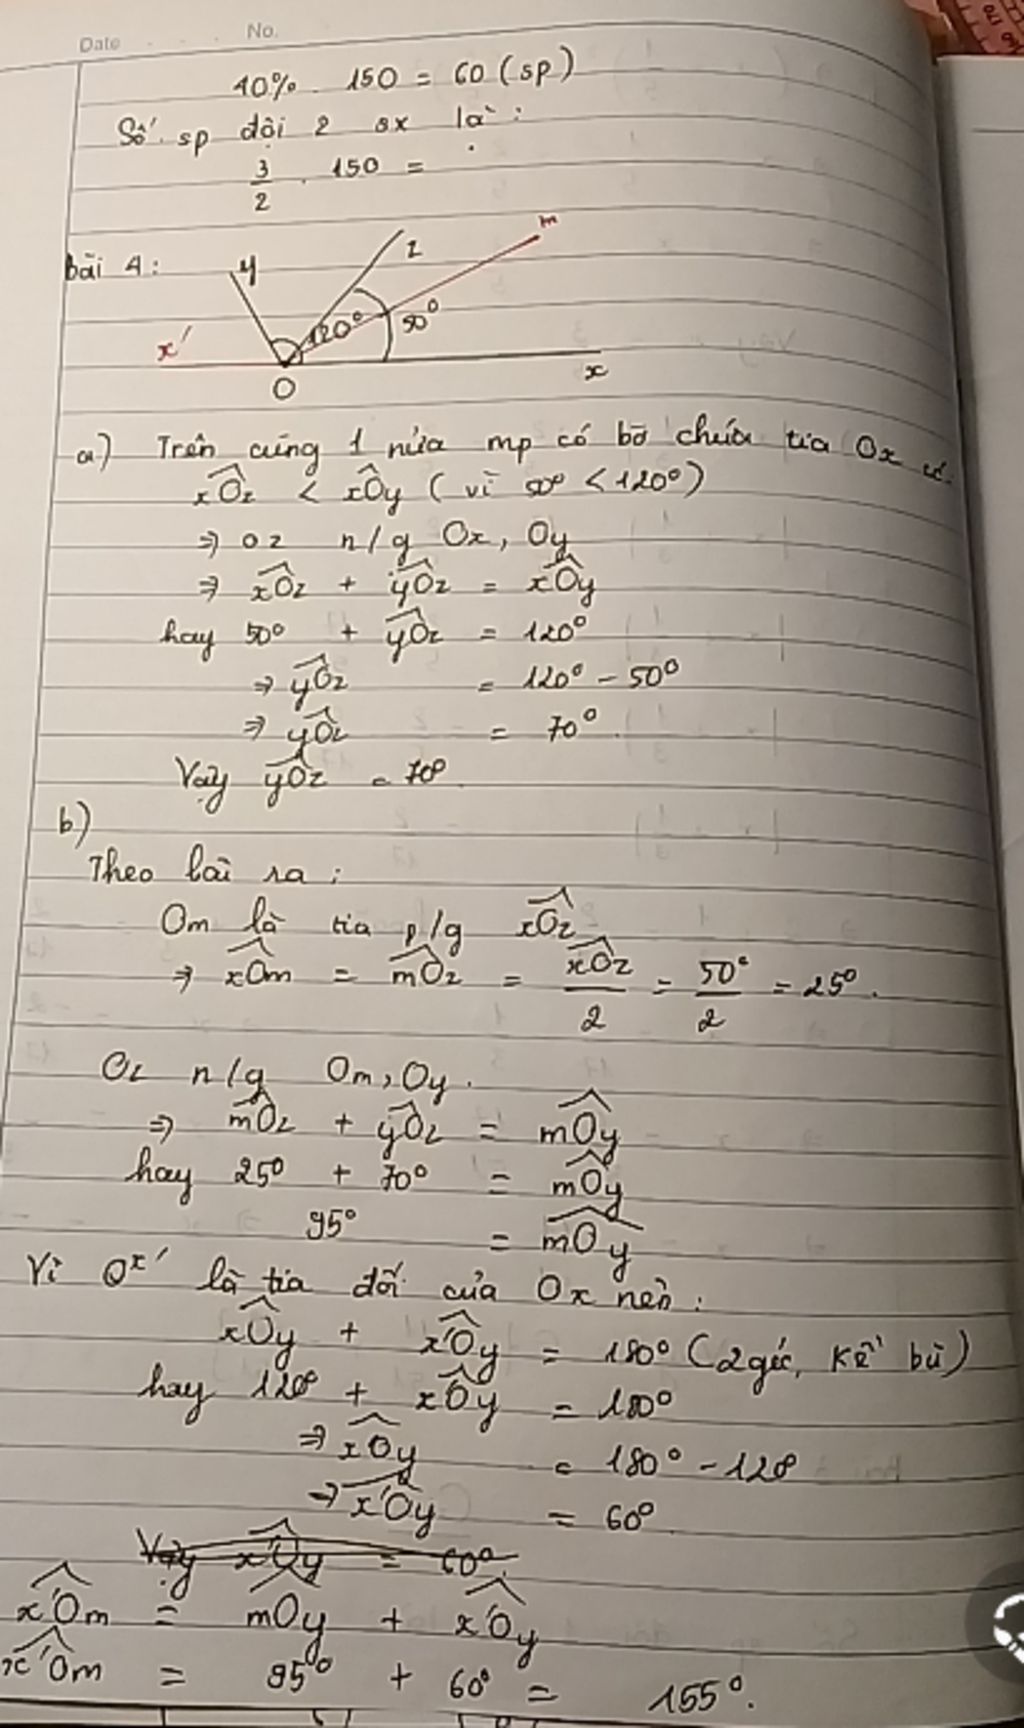 Date No.
40% . 150 = 60 (sp)
Số sp đội 2 sx là :
3/2 . 150 =
bài 4 :
y z m
x' 120° 50°
O x
a) Trên cùng 1 nửa mp có bờ chứa tia Ox có
xOz < xOy ( vì 50° < 120°)
⇒ Oz n/g Ox, Oy
⇒ xOz + yOz = xOy
hay 50° + yOz = 120°
⇒ yOz = 120° - 50°
⇒ yOz = 70°
Vậy yOz = 70°
b)
Theo bài ra :
Om là tia p/g xOz
⇒ xOm = mOz = xOz/2 = 50°/2 = 25°.
Oz n/g Om, Oy.
⇒ mOz + yOz = mOy
hay 25° + 70° = mOy
95° = mOy
Vì Ox' là tia đối của Ox nên :
xOy + x'Oy = 180° (2 góc kề bù)
hay 120° + xOy = 180°
⇒ xOy = 180° - 120
⇒ x'Oy = 60°
Vậy x'Oy = 60°
x'Om = mOy + x'Oy
x'Om = 95° + 60° = 155°.